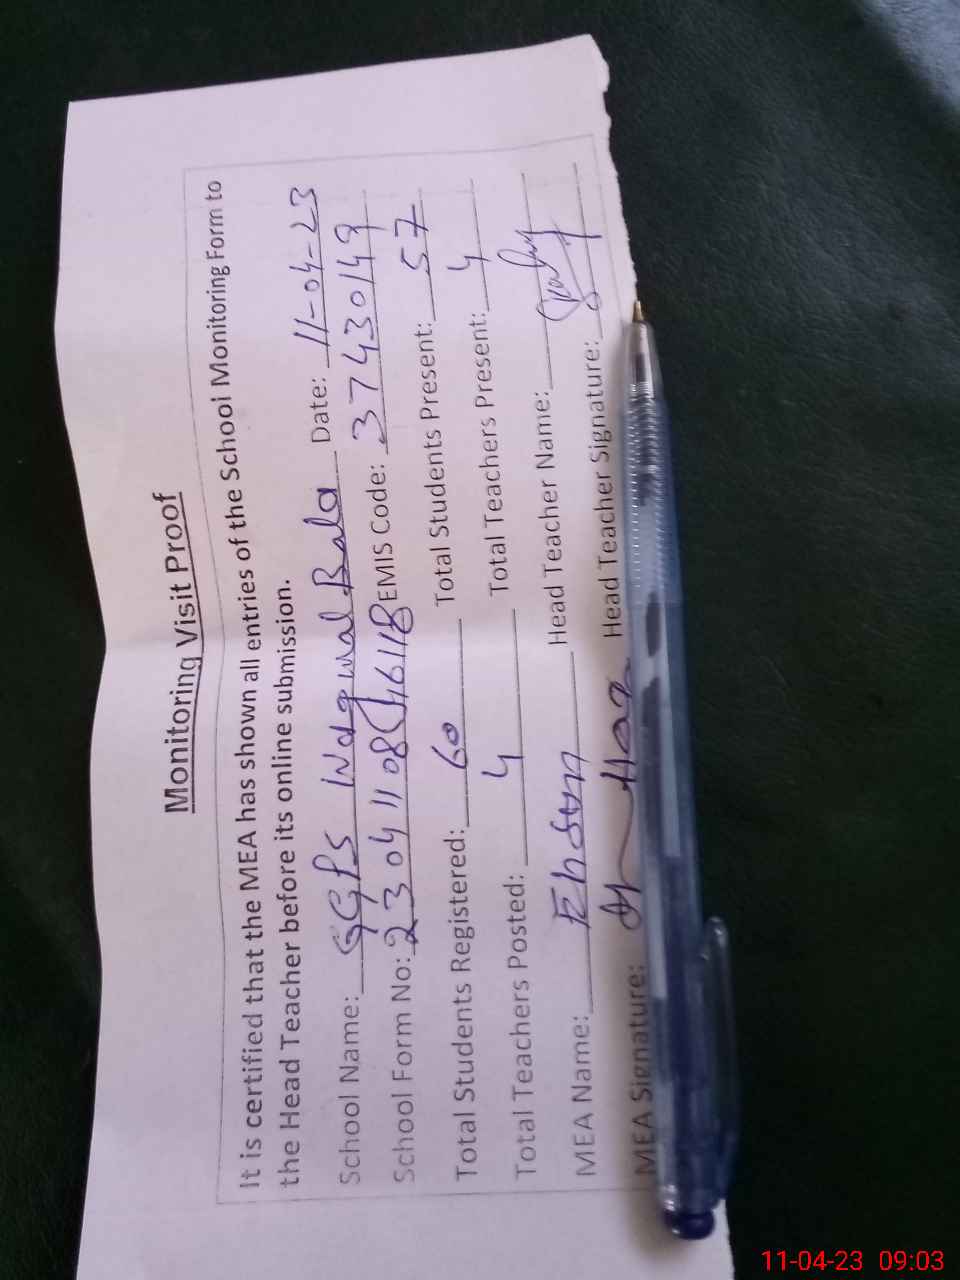 Monitoring Visit Proof
It is certified that the MEA has shown all entries of the School Monitoring Form to
the Head Teacher before its online submission.
School Name: GGPS Wagwal Bala Date: 11-04-23
School Form No: 23041108 46118 EMIS Code: 37430149
Total Students Registered: 60 Total Students Present: 57
Total Teachers Posted: 4 Total Teachers Present: 4
MEA Name: Ehsan Head Teacher Name:
MEA Signature: Head Teacher Signature:
11-04-23 09:03